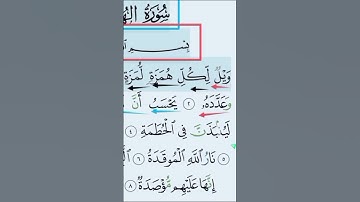 سُورَةُ
بِسْمِ
وَيْلٌ لِّكُلِّ هُمَزَةٍ لُّمَزَةٍ
وَعَدَّدَهُۥ ٢ يَحْسَبُ أَنَّ
لَيُنۢبَذَنَّ فِى ٱلْحُطَمَةِ ٤
٥ نَارُ ٱللَّهِ ٱلْمُوقَدَةُ ٦
إِنَّهَا عَلَيْهِم مُّؤْصَدَةٌ ٨